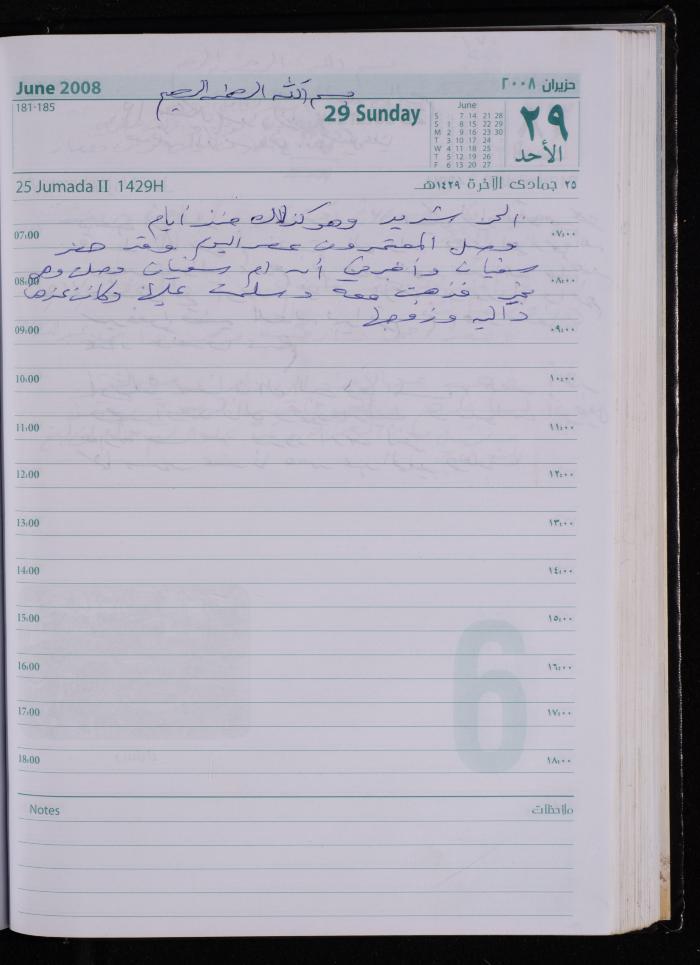 June 2008
حزيران ٢٠٠٨
بسم الله الرحمن الرحيم
181-185
29 Sunday
June
S 7 14 21 28
S 1 8 15 22 29
M 2 9 16 23 30
T 3 10 17 24
W 4 11 18 25
T 5 12 19 26
F 6 13 20 27
٢٩
الأحد
25 Jumada II 1429H
٢٥ جمادى الآخرة ١٤٢٩هـ
الحر شديد وهو كذلك منذ أيام
07:00 ٠٧:٠٠
وصل المعتمرون عصر اليوم وقد حضر
سفيان وأخبرني أن أم سفيان وصلت وهي
08:00 ٠٨:٠٠
بخير فذهبت معه وسلمت عليها وكان عندها
داليه وزوجها
09:00 ٠٩:٠٠
10:00 ١٠:٠٠
11:00 ١١:٠٠
12:00 ١٢:٠٠
13:00 ١٣:٠٠
14:00 ١٤:٠٠
15:00 ١٥:٠٠
16:00 ١٦:٠٠
17:00 ١٧:٠٠
18:00 ١٨:٠٠
6
Notes
ملاحظات